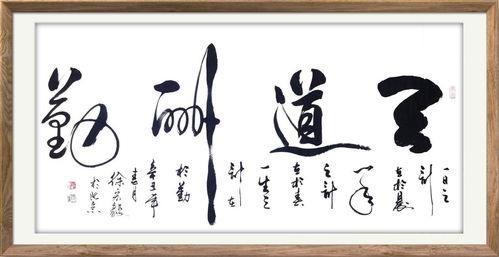 天道酬勤
一日之
计
在於晨
一年
之计
在於春
一生之
计在
於勤
辛丑年
春月
徐
於北京